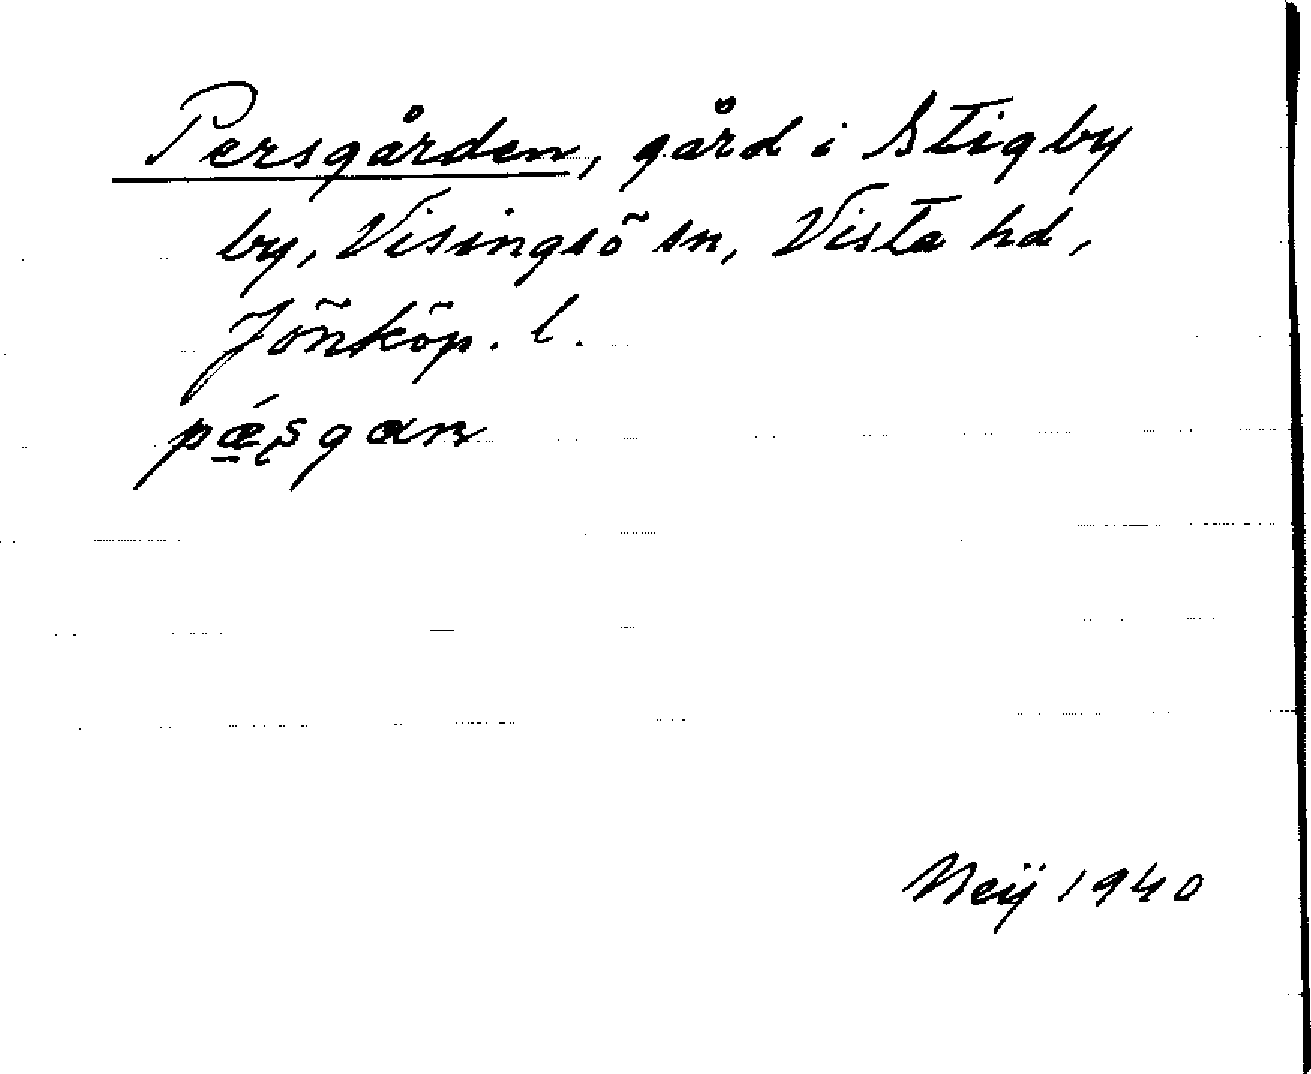 Persgården, gård i Stigby
by, Visingsö sn, Vista hd,
Jönköp. l.
pǽşgan
Neij 1940